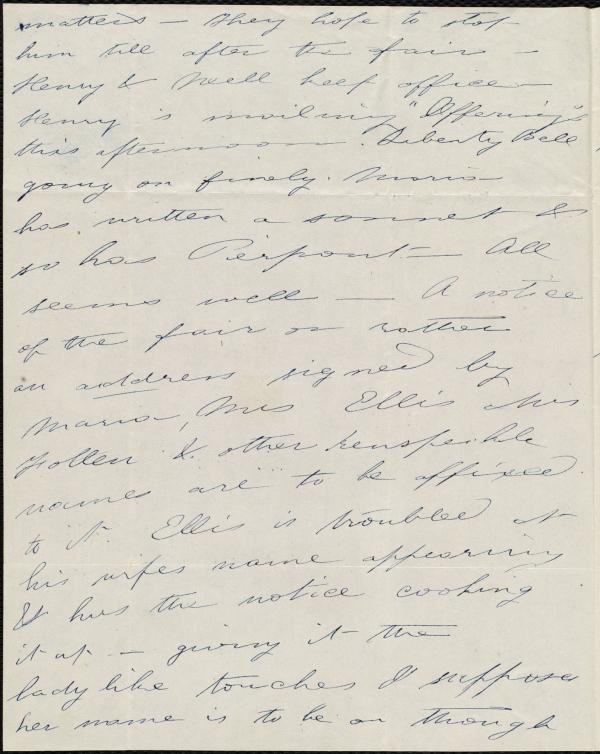 matters — they hope to stop
him till after the fair —
Henry & Nell keep office —
Henry is unwilling "Offering"
this afternoon. Liberty Bell
going on finely. Maria
has written a sonnet &
so has Pierpont — All
seems well — A notice
of the fair or rather
an address signed by
Maria, Mrs Ellis Mrs
Follen & other
names are to be affixed
to it. Ellis is troubled at
his wifes name appearing
& has the notice cooking
it up — giving it the
lady like touches I suppose
her name is to be on though